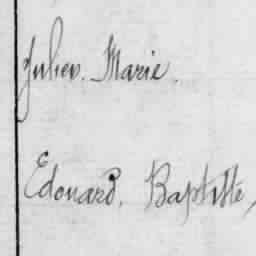 Julien. Marie.
Edouard. Baptiste,